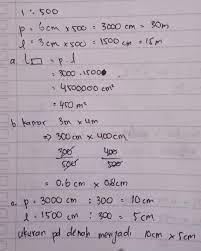 1 : 500
p = 6 cm x 500 = 3000 cm = 30 m
l = 3 cm x 500 = 1500 cm = 15 m
a. L▭ = p . l
= 3000 . 1500
= 4500000 cm²
= 450 m²
b. kamar 3m x 4m
⇒ 300 cm x 400 cm
300/500 400/500
= 0.6 cm x 0.8 cm
c. p = 3000 cm : 300 = 10 cm
l = 1500 cm : 300 = 5 cm
ukuran pd denah menjadi 10cm x 5cm